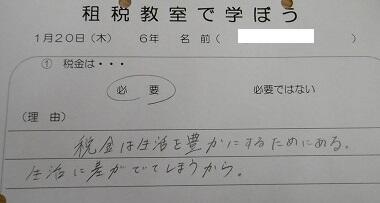 租税教室で学ぼう
1月20日（木） 6年 名前（ ）
① 税金は・・・
必要 必要ではない
（理由）
税金は生活を豊かにするためにある。
生活に差がでてしまうから。